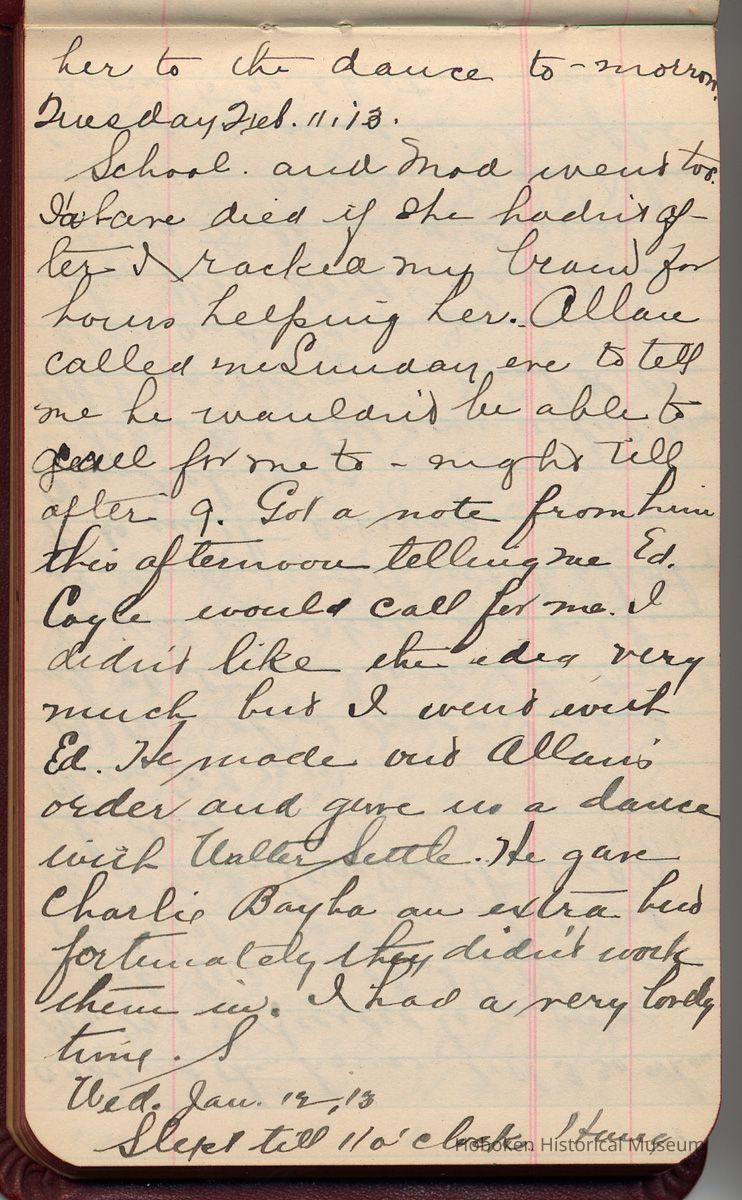 her to the dance to-morrow.
Tuesday Feb. 11, '13.
School. and Mad went too.
I'd have died if she hadn't af-
ter I racked my brain for
hours helping her. Allan
called me Sunday eve to tell
me he wouldn't be able to
call for me to-night till
after 9. Got a note from him
this afternoon telling me Ed.
Coyle would call for me. I
didn't like the idea very
much but I went with
Ed. He made out Allan's
order and gave us a dance
with Walter Settle. He gave
Charlie Bayha an extra but
fortunately they didn't work
them in. I had a very lovely
time. S
Wed. Jan. 12, 13
Slept till 11 o'clock
Hoboken Historical Museum